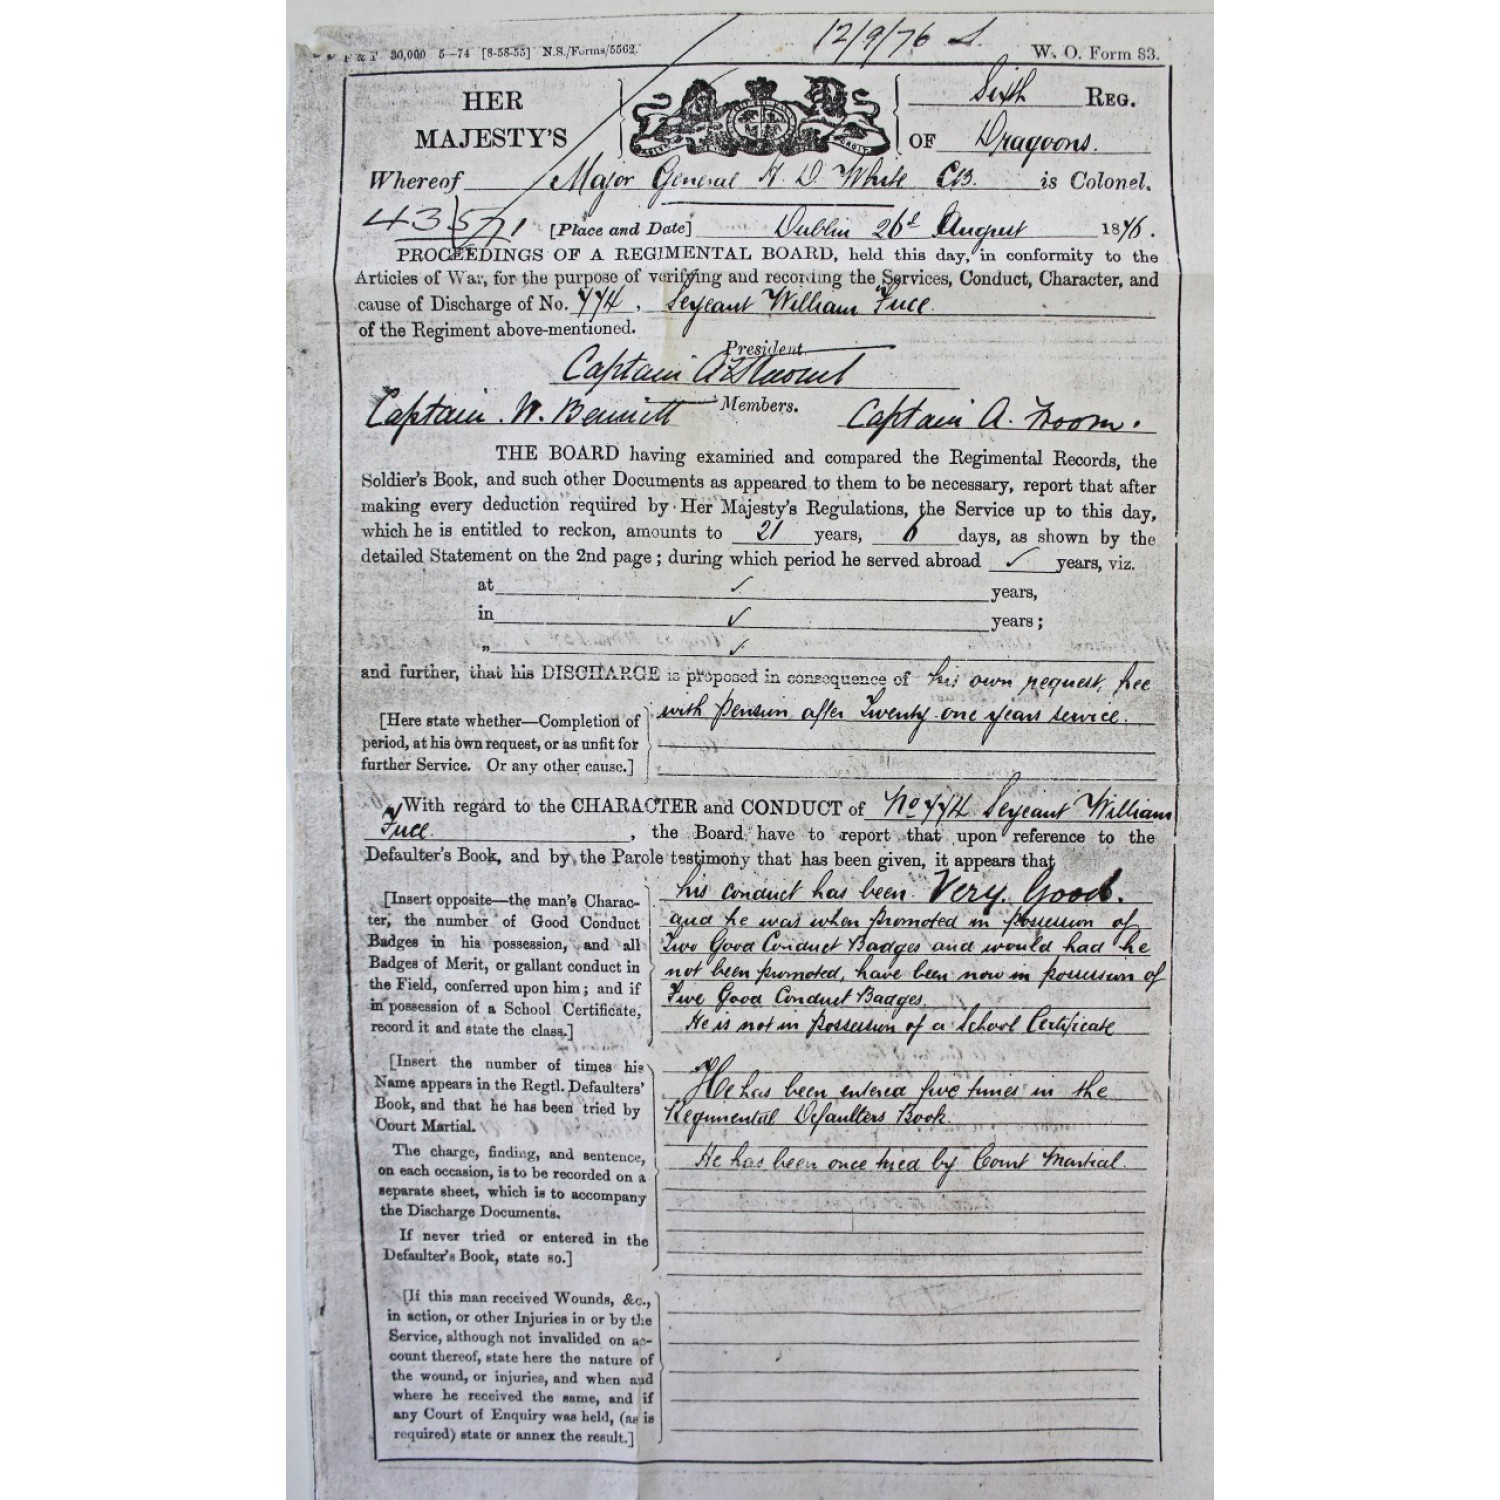 30,000 5—74 [8-58-55] N.S./Forms/5562.
12/9/76
W. O. Form 83.
HER
MAJESTY'S
Sixth REG.
OF Dragoons.
Whereof Major General H. D. White CB. is Colonel.
[Place and Date] Dublin 26th August 1876.
PROCEEDINGS OF A REGIMENTAL BOARD, held this day, in conformity to the
Articles of War, for the purpose of verifying and recording the Services, Conduct, Character, and
cause of Discharge of No. 774. Serjeant William
of the Regiment above-mentioned.
President
Captain
Captain W. Bennett Members. Captain A.
THE BOARD having examined and compared the Regimental Records, the
Soldier's Book, and such other Documents as appeared to them to be necessary, report that after
making every deduction required by Her Majesty's Regulations, the Service up to this day,
which he is entitled to reckon, amounts to 21 years, 6 days, as shown by the
detailed Statement on the 2nd page; during which period he served abroad ✓ years, viz.
at ✓ years,
in ✓ years;
„ ✓
and further, that his DISCHARGE is proposed in consequence of his own request, free
with pension after Twenty one years service.
[Here state whether—Completion of
period, at his own request, or as unfit for
further Service. Or any other cause.]
With regard to the CHARACTER and CONDUCT of No 774 Serjeant William
, the Board have to report that upon reference to the
Defaulter's Book, and by the Parole testimony that has been given, it appears that
[Insert opposite—the man's Charac-
ter, the number of Good Conduct
Badges in his possession, and all
Badges of Merit, or gallant conduct in
the Field, conferred upon him; and if
in possession of a School Certificate,
record it and state the class.]
his conduct has been Very Good.
and he was when promoted in possession of
Two Good Conduct Badges and would had he
not been promoted, have been now in possession of
Five Good Conduct Badges.
He is not in possession of a School Certificate
[Insert the number of times his
Name appears in the Regtl. Defaulters'
Book, and that he has been tried by
Court Martial.
The charge, finding, and sentence,
on each occasion, is to be recorded on a
separate sheet, which is to accompany
the Discharge Documents.
If never tried or entered in the
Defaulter's Book, state so.]
He has been entered five times in the
Regimental Defaulters Book.
He has been once tried by Court Martial.
[If this man received Wounds, &c.,
in action, or other Injuries in or by the
Service, although not invalided on ac-
count thereof, state here the nature of
the wound, or injuries, and when and
where he received the same, and if
any Court of Enquiry was held, (as is
required) state or annex the result.]